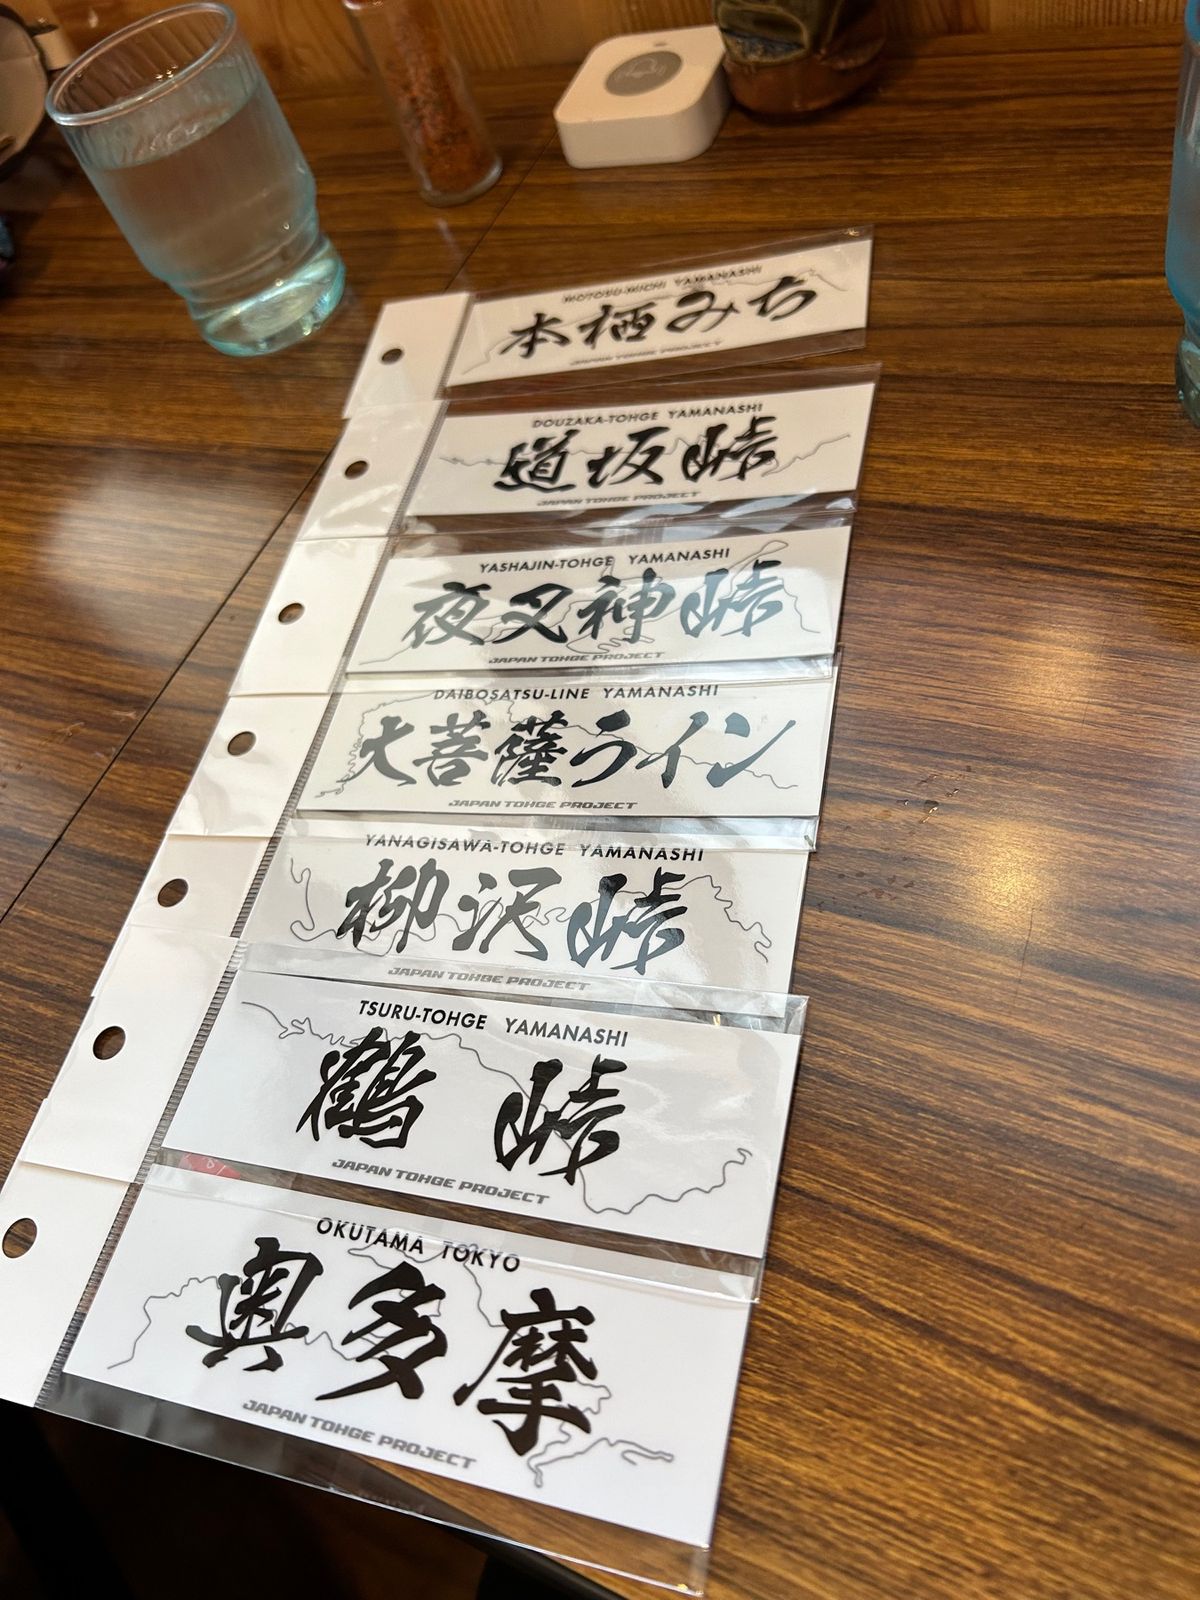 MOTOSU-MICHI YAMANASHI
本栖みち
JAPAN TOHGE PROJECT
DOUZAKA-TOHGE YAMANASHI
道坂峠
JAPAN TOHGE PROJECT
YASHAJIN-TOHGE YAMANASHI
夜叉神峠
JAPAN TOHGE PROJECT
DAIBOSATSU-LINE YAMANASHI
大菩薩ライン
JAPAN TOHGE PROJECT
YANAGISAWA-TOHGE YAMANASHI
柳沢峠
JAPAN TOHGE PROJECT
TSURU-TOHGE YAMANASHI
鶴峠
JAPAN TOHGE PROJECT
OKUTAMA TOKYO
奥多摩
JAPAN TOHGE PROJECT